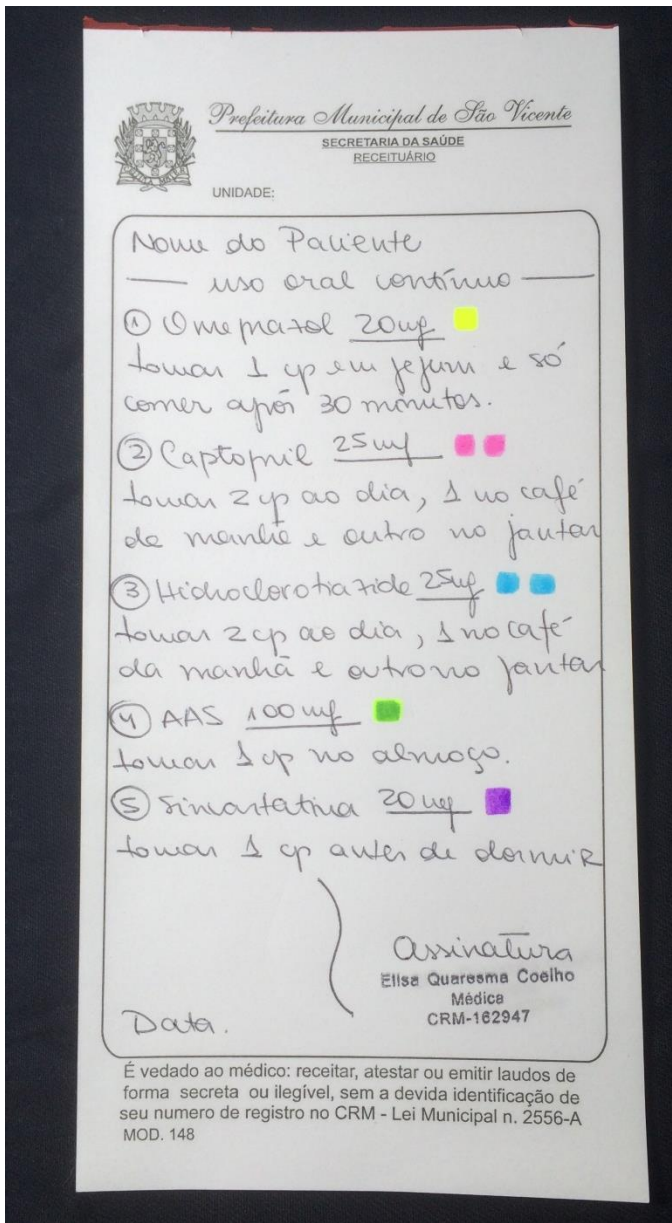 Prefeitura Municipal de São Vicente
SECRETARIA DA SAÚDE
RECEITUÁRIO
UNIDADE:
Nome do Paciente
— uso oral contínuo —
① Omeprazol 20mg
tomar 1 cp em jejum e só
comer após 30 minutos.
② Captopril 25mg
tomar 2 cp ao dia, 1 no café
da manhã e outro no jantar
③ Hidroclorotiazida 25mg
tomar 2 cp ao dia, 1 no café
da manhã e outro no jantar
④ AAS 100mg
tomar 1 cp no almoço.
⑤ Sinvastatina 20mg
tomar 1 cp antes de dormir
Assinatura
Elisa Quaresma Coelho
Médica
CRM-162947
Data.
É vedado ao médico: receitar, atestar ou emitir laudos de
forma secreta ou ilegível, sem a devida identificação de
seu numero de registro no CRM - Lei Municipal n. 2556-A
MOD. 148